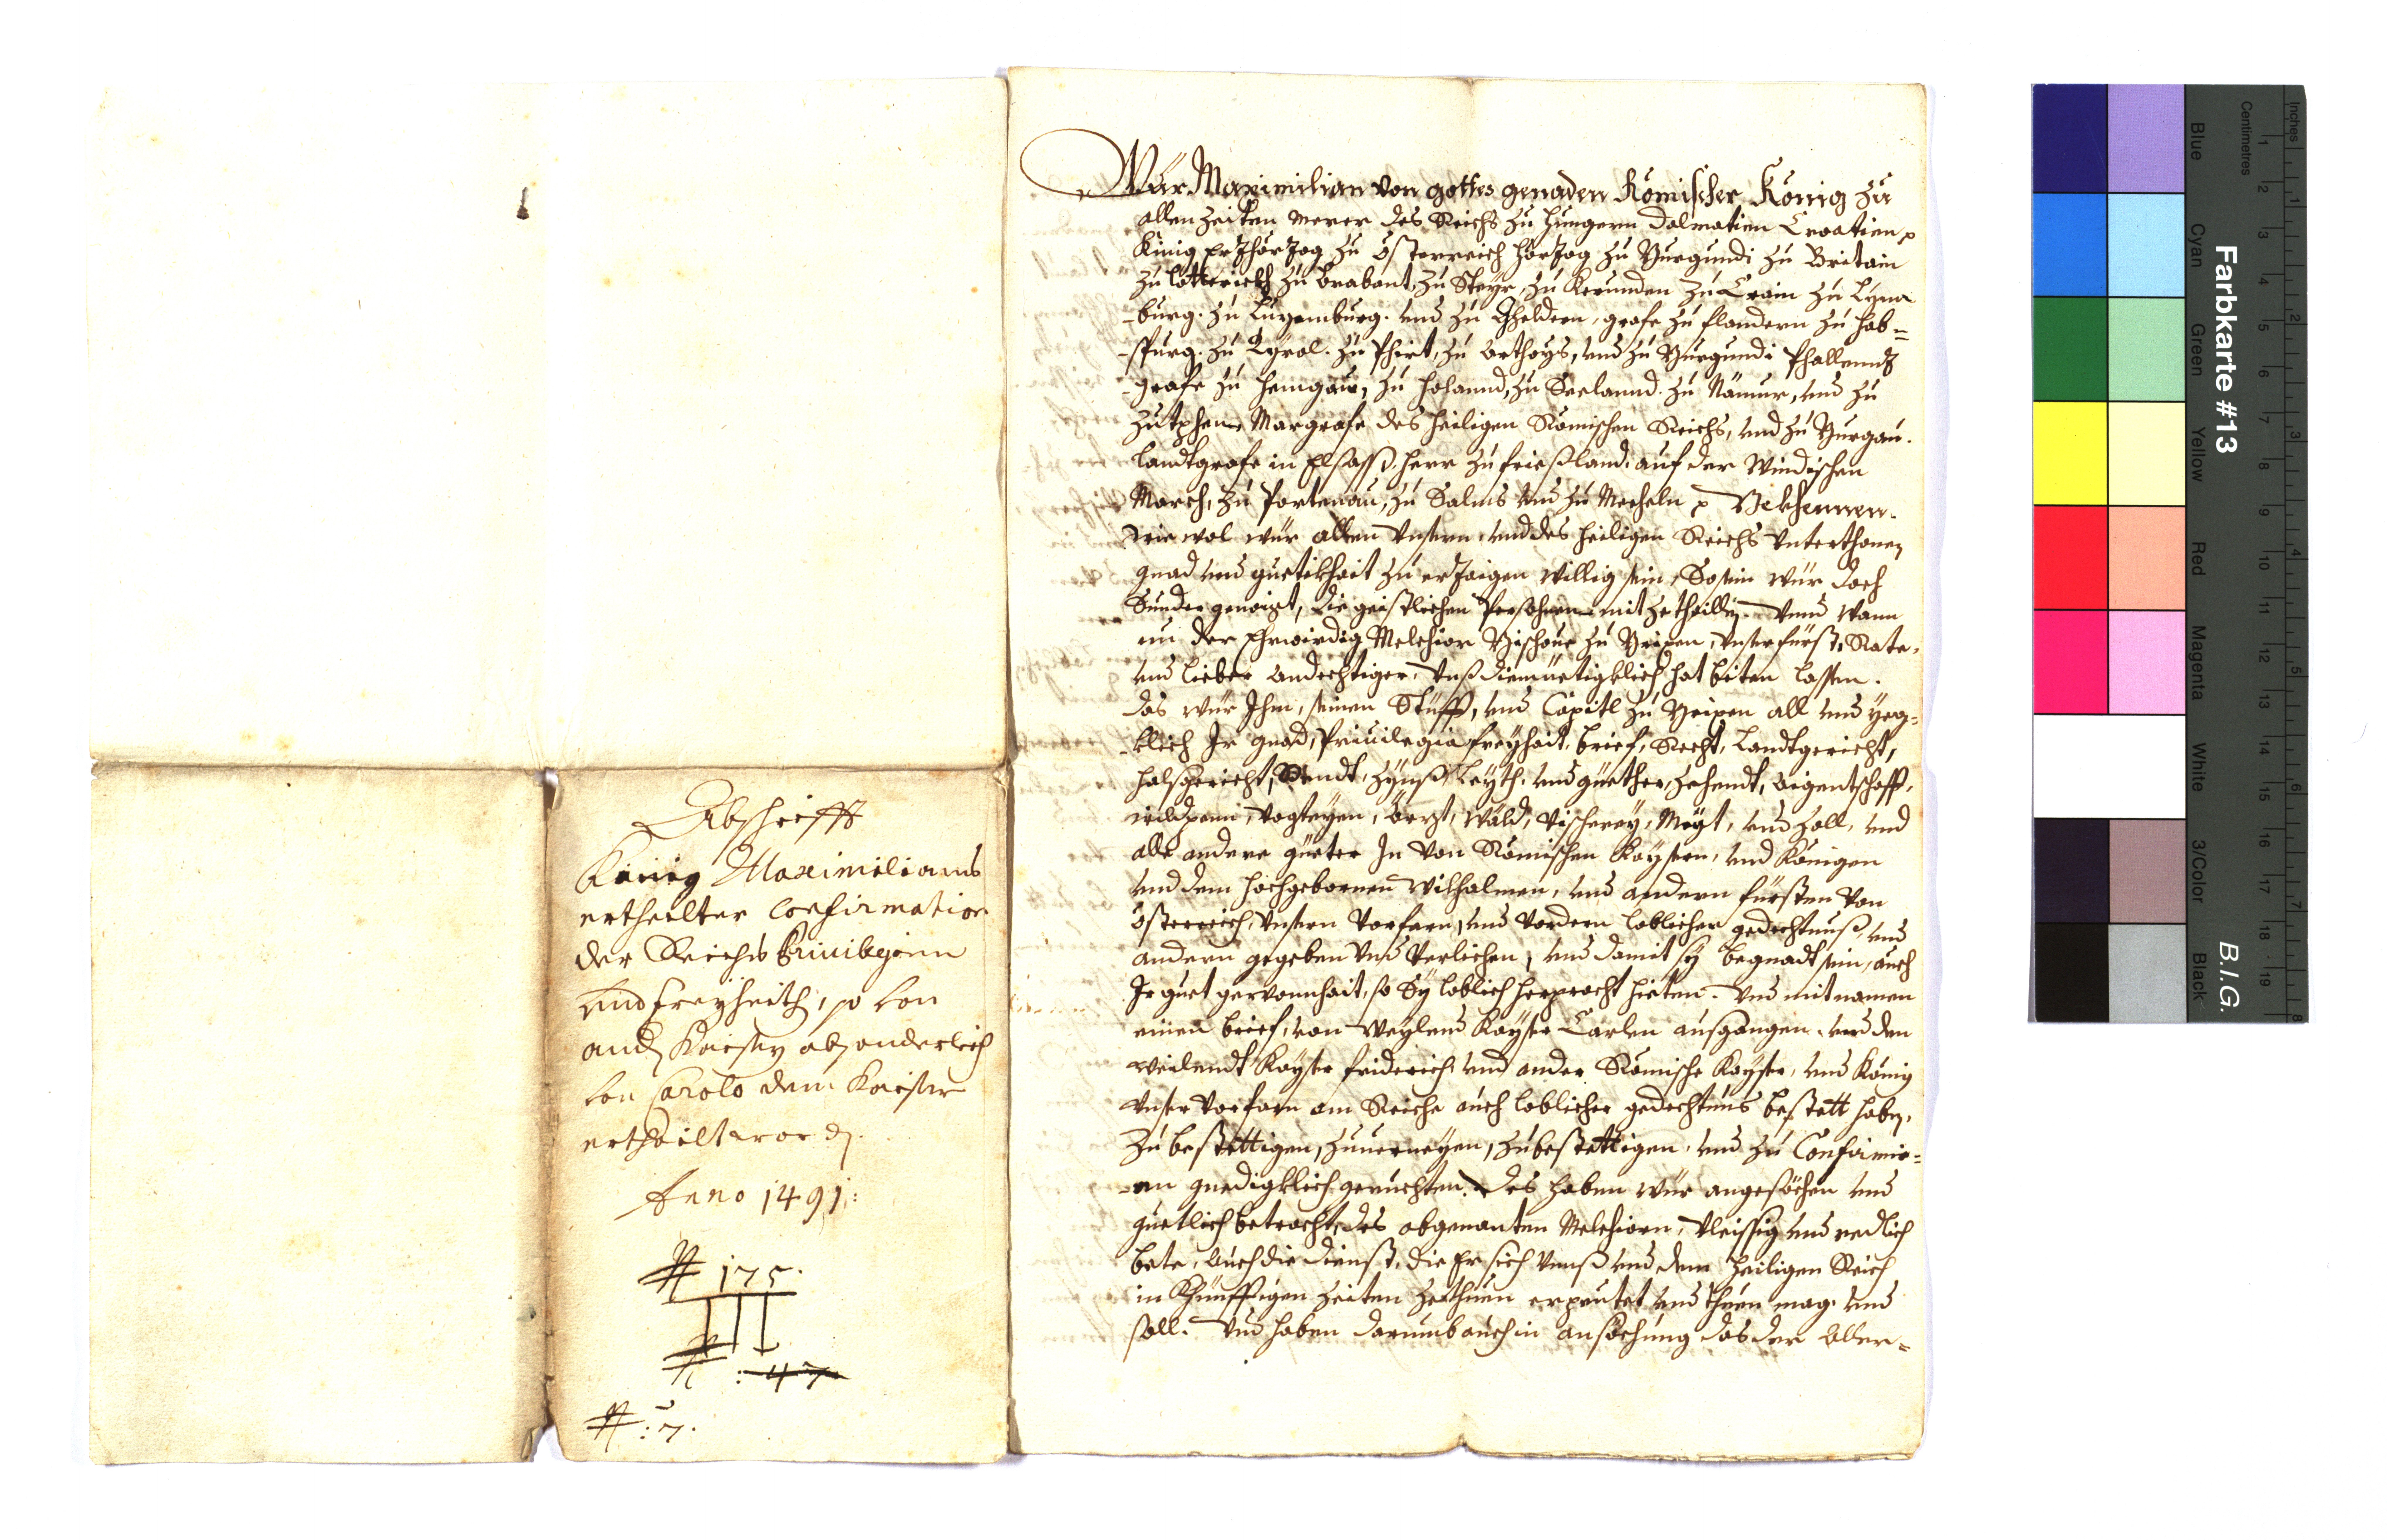 Abschrifft
König Maximilians
ertheilter Confirmation
der Reichs Priuilegien
und Freyheith, so von
and. Kaiser absonderlich
von Carolo dem Kaiser
ertheilt word.
Anno 1491:
# 175.
# : 47
# : 7.
Wür Maximilian von gottes genaden Römischer König zu
allen zeiten merer des Reichs zu Hungern Dalmatien Croatien
König Ertzhörtzog zu Össterreich Hörtzog zu Burgundi zu Britain
zu Lotterickh zu Brabant, zu Steyr, zu Kerunden zu Crain zu Lyma
-burg. zu Luxemburg. und zu Gheldern, grafe zu flandern zu Hab=
-spurg. zu Tyrol. zu Phirt, zu Arthoys, und zu Burgundi Phallenntz
-grafe zu Henigau, zu Holannd, zu Seelannd. zu Nämur, und zu
Zutphen Margrafe des Heiligen Römischen Reichs, und zu Burgau.
Landtgrafe in Elsass. Herr zu frießland. auf der Windischen
March, zu Portenau, zu Salms und zu Mecheln Bekhennen.
wie wol wür allen unsern und des Heiligen Reichs unterthonen
gnad und guetikhait zu ertzaigen willig sein, So sein wür doch
Sunder genaigt, die geistlichen Persohnen mit ze theillen. Und wann
nu der Ehrwirdig Melchior Bischoue zu Brixen, unser fürst, Rate,
und lieber andechtiger, unß diemüetigklich hat biten lassen.
das wür Ihm, seinen Stüfft, und Capitl zu Brixen all und yeg=
-klich Ir gnad, Priuilegia freyhait, brief, Recht, Landtgericht,
halsgericht, Rendt, Zynß, Leyth. und güether, zehendt, aigentschafft,
wildpenn, vogteyen, ärzt, Wäld, vischerey, Meyt, und zoll, und
alle andere güeter In von Römischen Kaysern, und Königen
und dem Hochgebornen Wilhalmen, und andern fürsten von
össterreich, unsern vorfarn, und vordern loblicher gedechtnuß, und
andern gegeben und verlichen, und damit sy begnadt sein, auch
Ir guet gewonnhait, so Sy loblich herpracht hieten. Und mit namen
einen brief, von weylend Kayser Carlen außgangen. und den
weilendt Kayser friderich und ander Römische Kayser, und König
unser vorfarn am Reiche auch loblicher gedechtnus bestett haben,
Zu bestettigen, zuuerneyen, zu bestettigen, und zu Confirmir=
-en gnedigklich geruchten. Des haben wür angesöchen und
guetlich betracht, des obgenanten Melchiorn, vleissig und redlich
bete, auch die dienst, die Er sich unß und dem Heiligen Reich
in Khünfftigen zeiten ze thuen erpeutet und thuen mag. und
soll. Und haben darumb auch in ansöchung das der Aller=